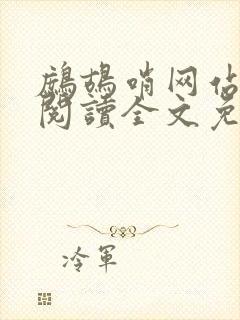 鷓鴣哨网佔
閱讀全文免
冷軍